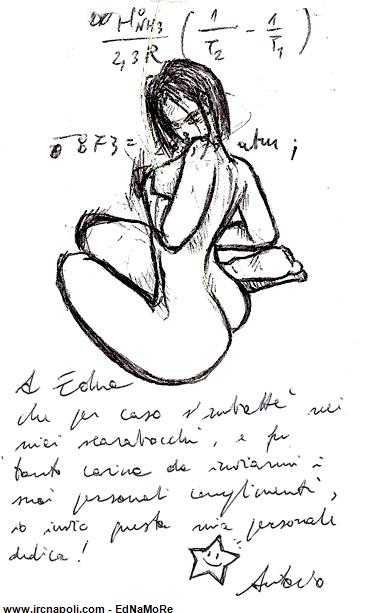 H°NH3 / 2,3 R ( 1/T2 - 1/T1 )
873 = atm ;
A Edna
che per caso s'imbatté nei
miei scarabocchi, e fu
tanto carina da inviarmi i
suoi personali complimenti,
io invio questa mia personale
dedica!
Antonio
www.ircnapoli.com - EdNaMoRe